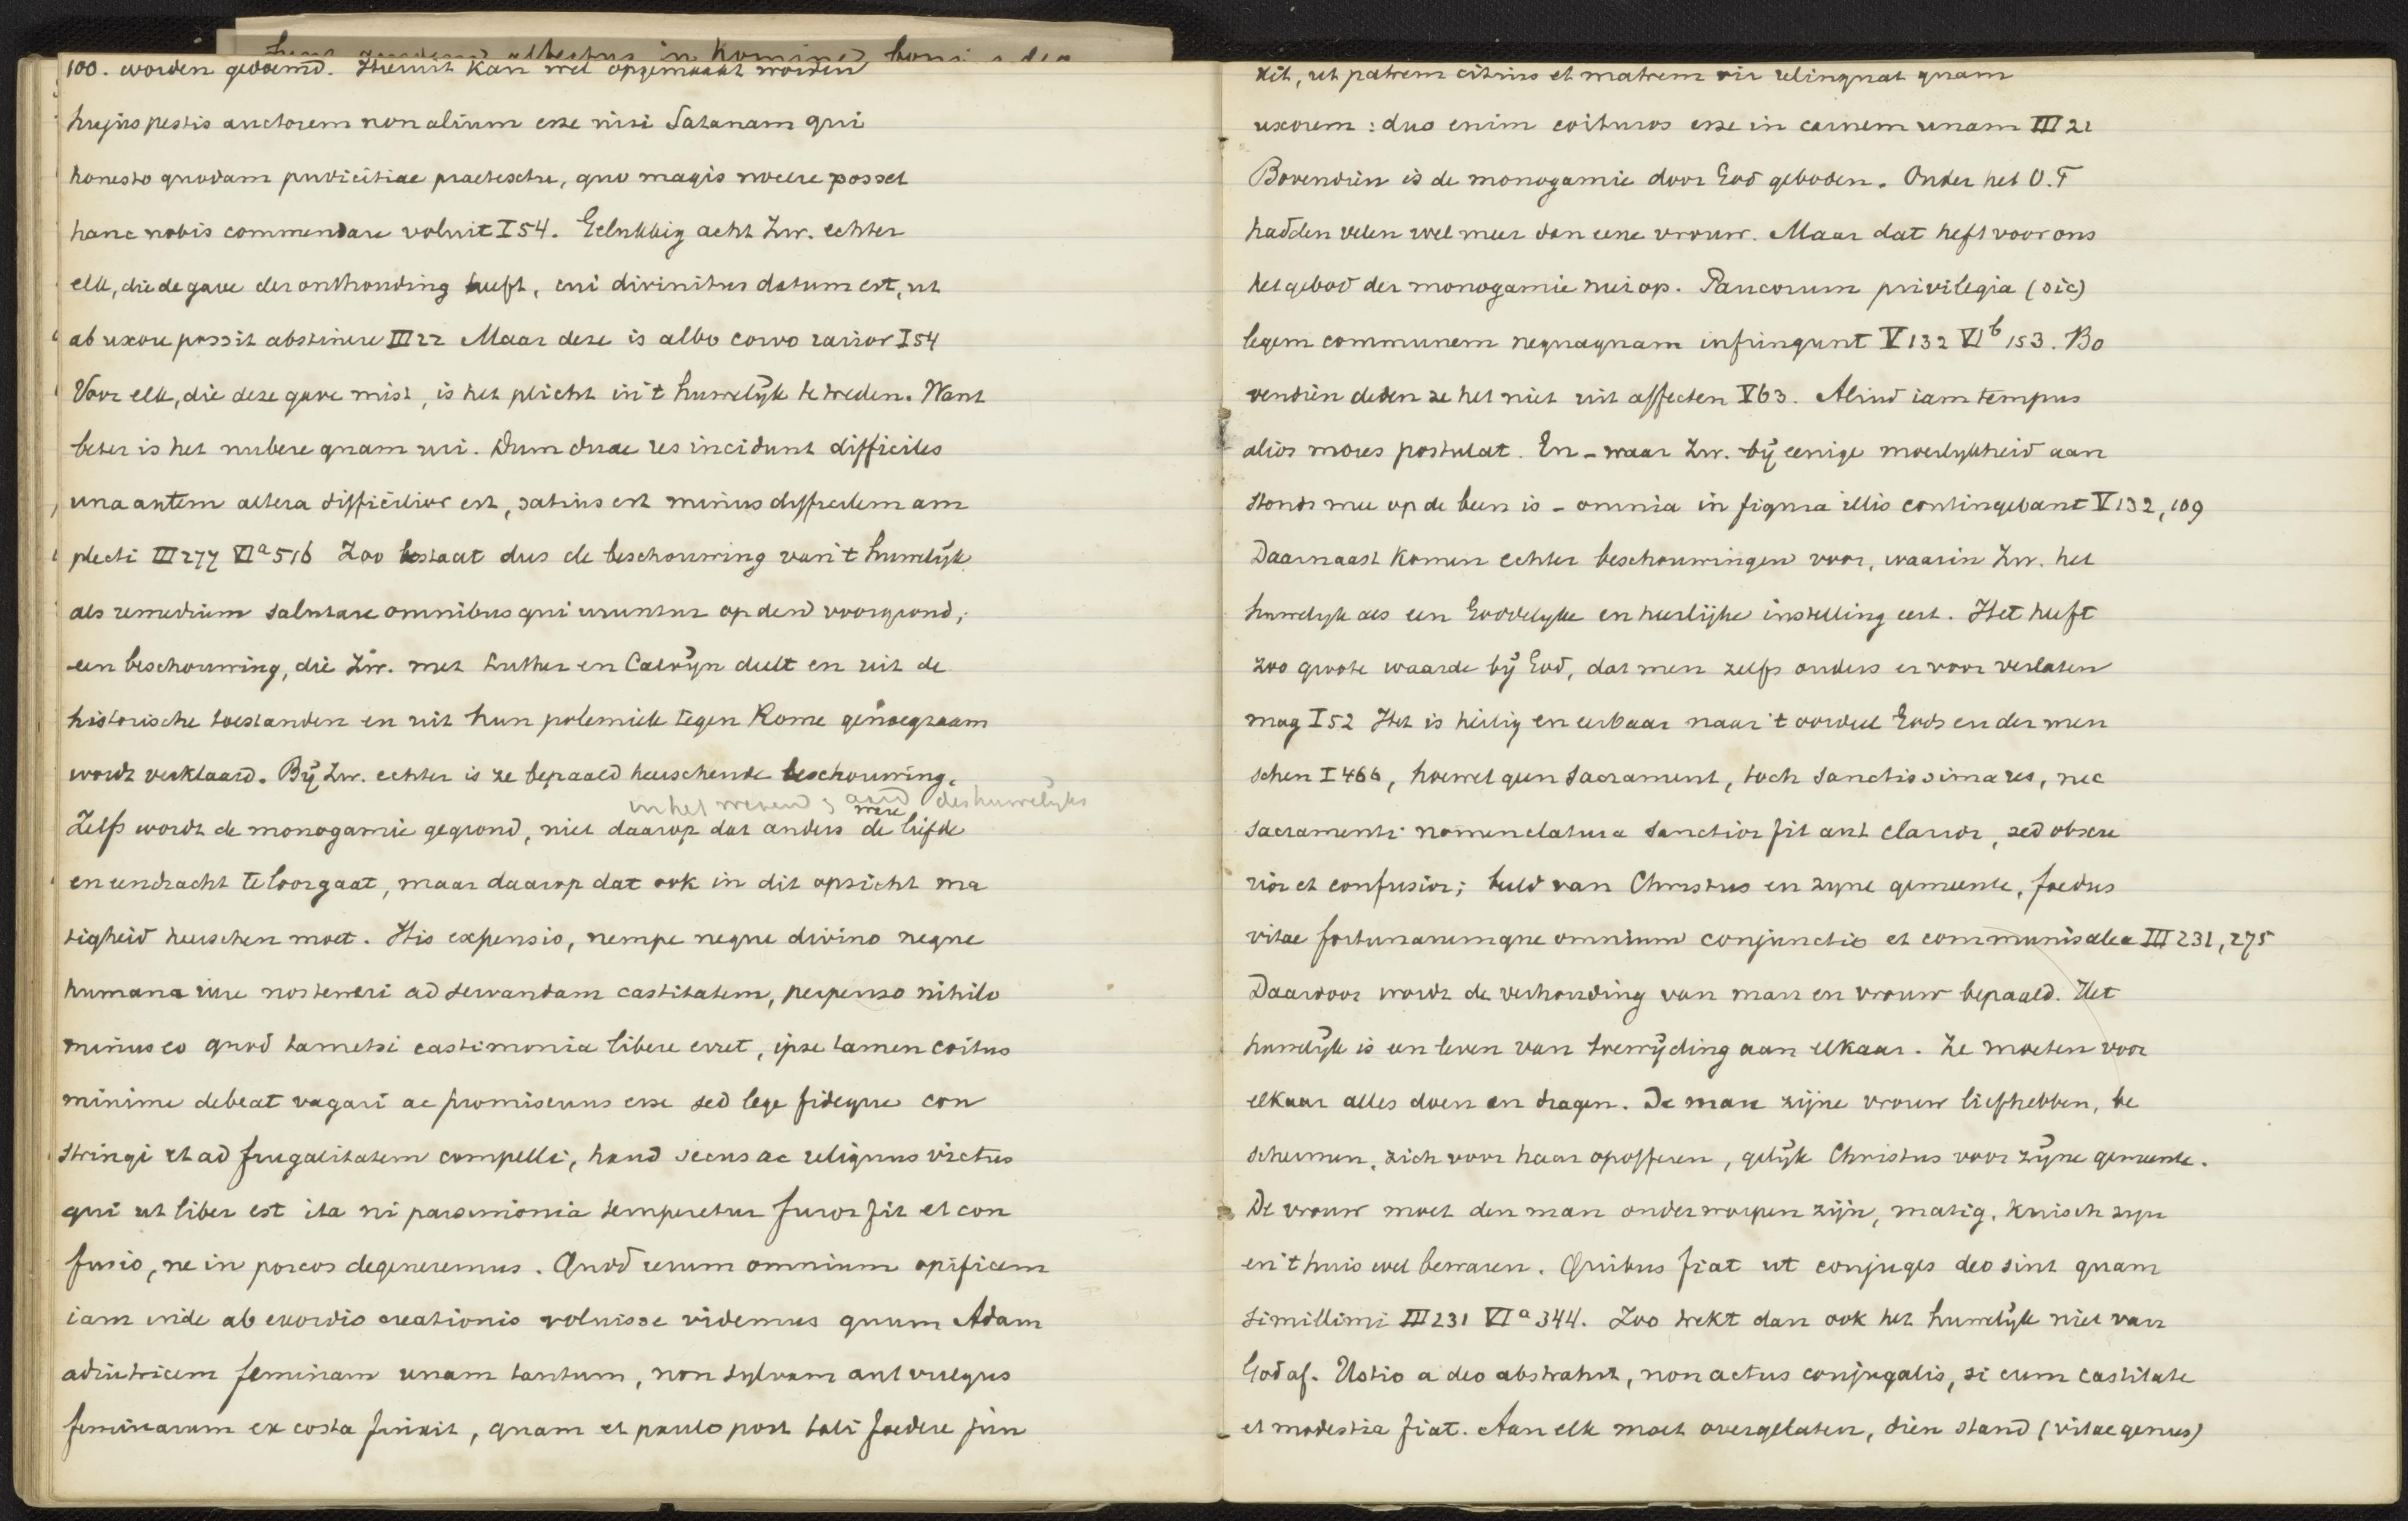 100. worden genoemd. Hieruit kan wel opgemaakt worden
hujus pestis auctorem non alium esse nisi Satanam qui
honesto quodam pudicitiae praetextu, quo magis nocere posset
hanc nobis commendare voluit I 54. Gelukkig acht Zw. echter
elk, die de gave der onthouding heeft, cui divinitus datum est, ut
ab uxore possit abstinere III 22 Maar deze is albo corvo rarior I 54
Voor elk, die deze gave mist, is het plicht in 't huwelijk te treden. Want
beter is het nubere quam uri. Dum duae res incidunt difficiles
una autem altera difficilior est, satius est minus difficilem am
plecti III 277 VI a 516 Zoo bestaat dus de beschouwing van 't huwelijk
als remedium salutare omnibus qui uruntur op den voorgrond;
een beschouwing, die Zw. met Luther en Calvijn deelt en uit de
historische toestanden en uit hun polemiek tegen Rome genoegzaam
wordt verklaard. Bij Zw. echter is ze bepaald heerschende beschouwing.
in het wezen & aard des huwelijks
ware
Zelfs wordt de monogamie gegrond, niet daarop dat anders de liefde
en eendracht te loor gaat, maar daarop dat ook in dit opzicht ma
tigheid heerschen moet. His expensis, nempe neque divino neque
humana iure nos teneri ad servandam castitatem, perpenso nihilo
minus eo quod tametsi castimonia libere erret, ipse tamen coitus
minime debeat vagari ac promiscuus esse sed lege fideque con
stringi et ad frugalitatem compelli, haud secus ac reliquus victus
qui ut liber est ita ni parsimonia temperetur furor fit et con
fusio, ne in porcos degeneremus. Quod rerum omnium opificem
iam inde ab exordio creationis voluisse videmus quum Adam
adiutricem feminam unam tantum, non sylvam aut vulgus
feminarum ex costa finxit, quam et paulo post tali foedere jun
xit, ut patrem citius et matrem vir relinquat quam
uxorem: duo enim coituros esse in carnem unam III 21
Bovendien is de monogamie door God geboden. Onder het O.T
hadden velen wel meer dan eene vrouw. Maar dat heft voor ons
het gebod der monogamie niet op. Paucorum privilegia (sic)
legem communem nequaquam infringunt V 132 VI b 153. Bo
vendien deden ze het niet uit affecten V 63. Aliud iam tempus
alios mores postulat. En - waar Zw. bij eenige moeilijkheid aan
stonds mee op de been is - omnia in figura illis contingebant V 132, 109
Daarnaast komen echter beschouwingen voor, waarin Zw. het
huwelijk als een Goddelijke en heerlijke instelling eert. Het heeft
zoo groote waarde bij God, dat men zelfs ouders er voor verlaten
mag I 52 Het is heilig en eerbaar naar 't oordeel Gods en der men
schen I 466, hoewel geen sacrament, toch sanctissima res, nec
sacramenti nomenclatura sanctior fit aut clarior, sed obscu
rior et confusior; beeld van Christus en zijne gemeente, foedus
vitae fortunarumque omnium conjunctio et communis alea III 231, 275
Daardoor wordt de verhouding van man en vrouw bepaald. Het
huwelijk is een leven van toewijding aan elkaar. Ze moeten voor
elkaar alles doen en dragen. De man zijne vrouw liefhebben, be
schermen, zich voor haar opofferen, gelijk Christus voor zijne gemeente.
De vrouw moet den man onderworpen zijn, matig, kuisch zijn
en 't huis wel bewaren. Quibus fiat ut conjuges deo sint quam
simillimi III 231 VI a 344. Zoo trekt dan ook het huwelijk niet van
God af. Ustio a deo abstrahit, non actus conjugalis, si cum castitate
et modestia fiat. Aan elk moet overgelaten, dien stand (vitae genus)